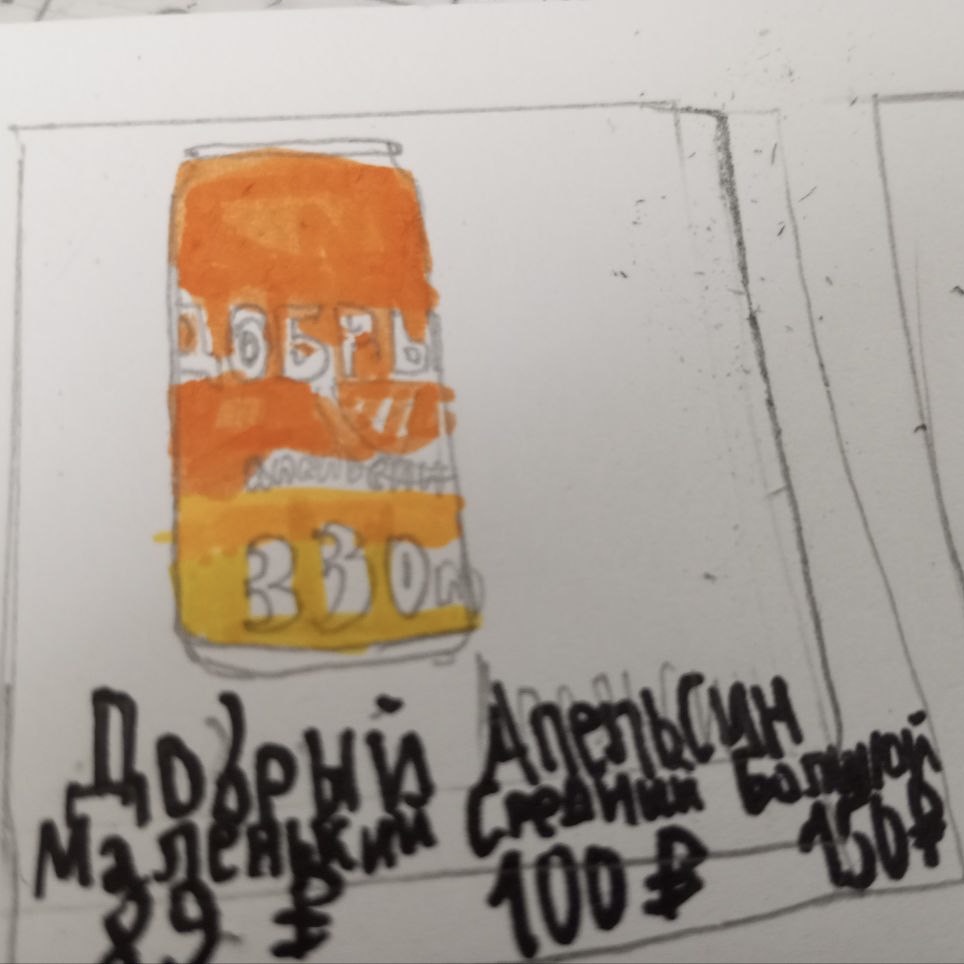 ДОБРЫ
апельсин
330м
Добрый Апельсин
Маленький Средний Большой
89 ₽ 100 ₽ 150 ₽